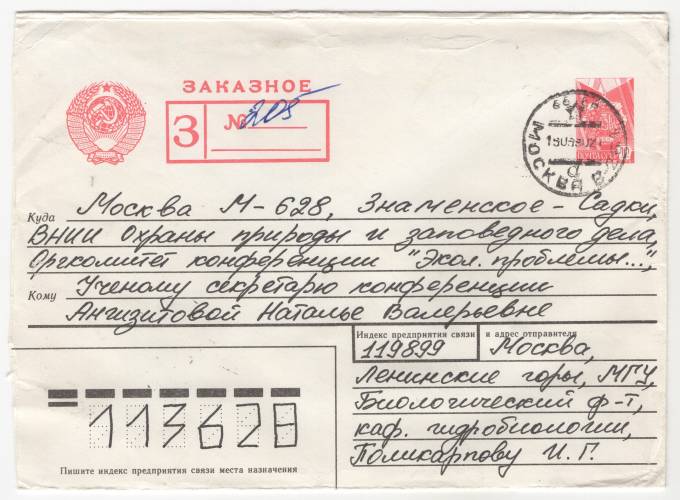 ЗАКАЗНОЕ
З
№ 205
МОСКВА
Куда Москва М-628, Знаменское-Садки,
ВНИИ Охраны природы и заповедного дела,
Оргкомитет конференции "Экол. проблемы...",
Кому Ученому секретарю конференции
Ангизитовой Наталье Валерьевне
Индекс предприятия связи и адрес отправителя
119899 Москва,
Ленинские горы, МГУ,
Биологический ф-т,
каф. гидробиологии,
Поликарпову И. Г.
113628
Пишите индекс предприятия связи места назначения